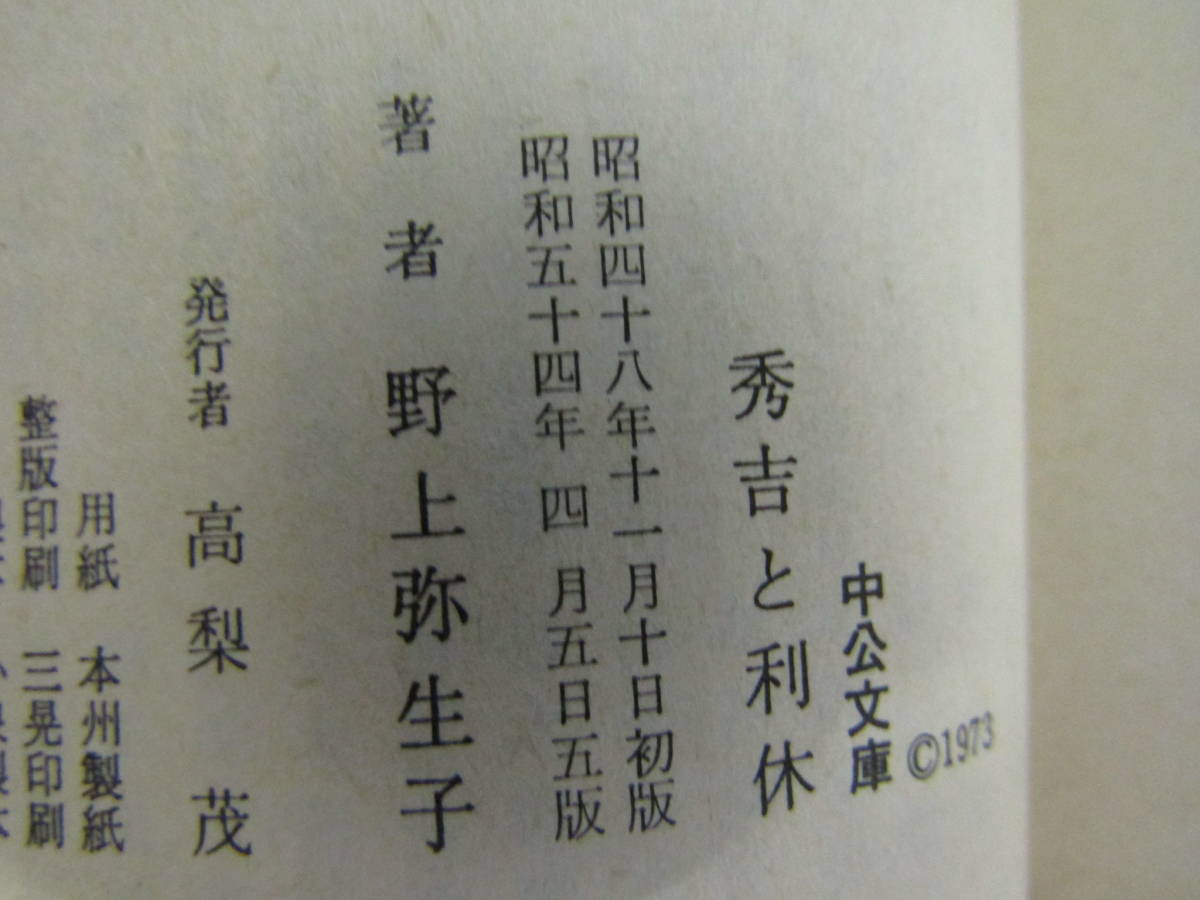 中公文庫 ©1973
秀吉と利休
昭和四十八年十一月十日初版
昭和五十四年四月五日五版
著者 野上弥生子
発行者 高梨 茂
用紙 本州製紙
整版印刷 三晃印刷